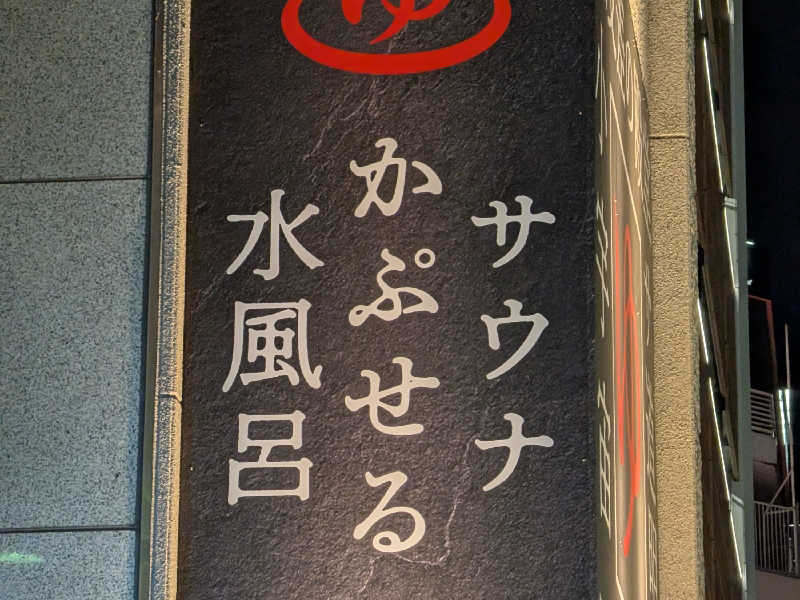 ゆ
サウナ
かぷせる
水風呂